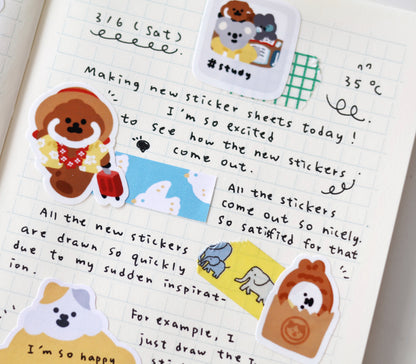 3/6 (Sat)
#study
35°C
Making new sticker sheets today!
I'm so excited
to see how the new stickers
come out.
All the stickers
come out so nicely.
so satified for that
All the new stickers
are drawn so quickly
due to my sudden inspirat-
ion.
For example, I
just draw the
I'm so happy